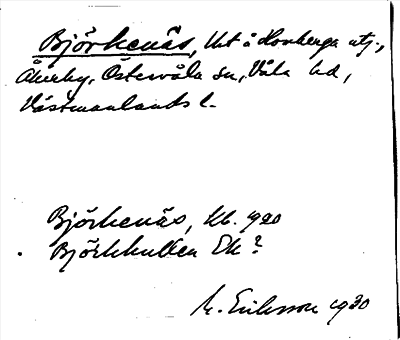 Björkenäs, lht å Horberga utj.,
Åkerby, Östervåla sn, Våla hd,
Västmanlands l.
Björkenäs, Kb. 1920
Björkkullen Ek?
M. Eriksson 1930